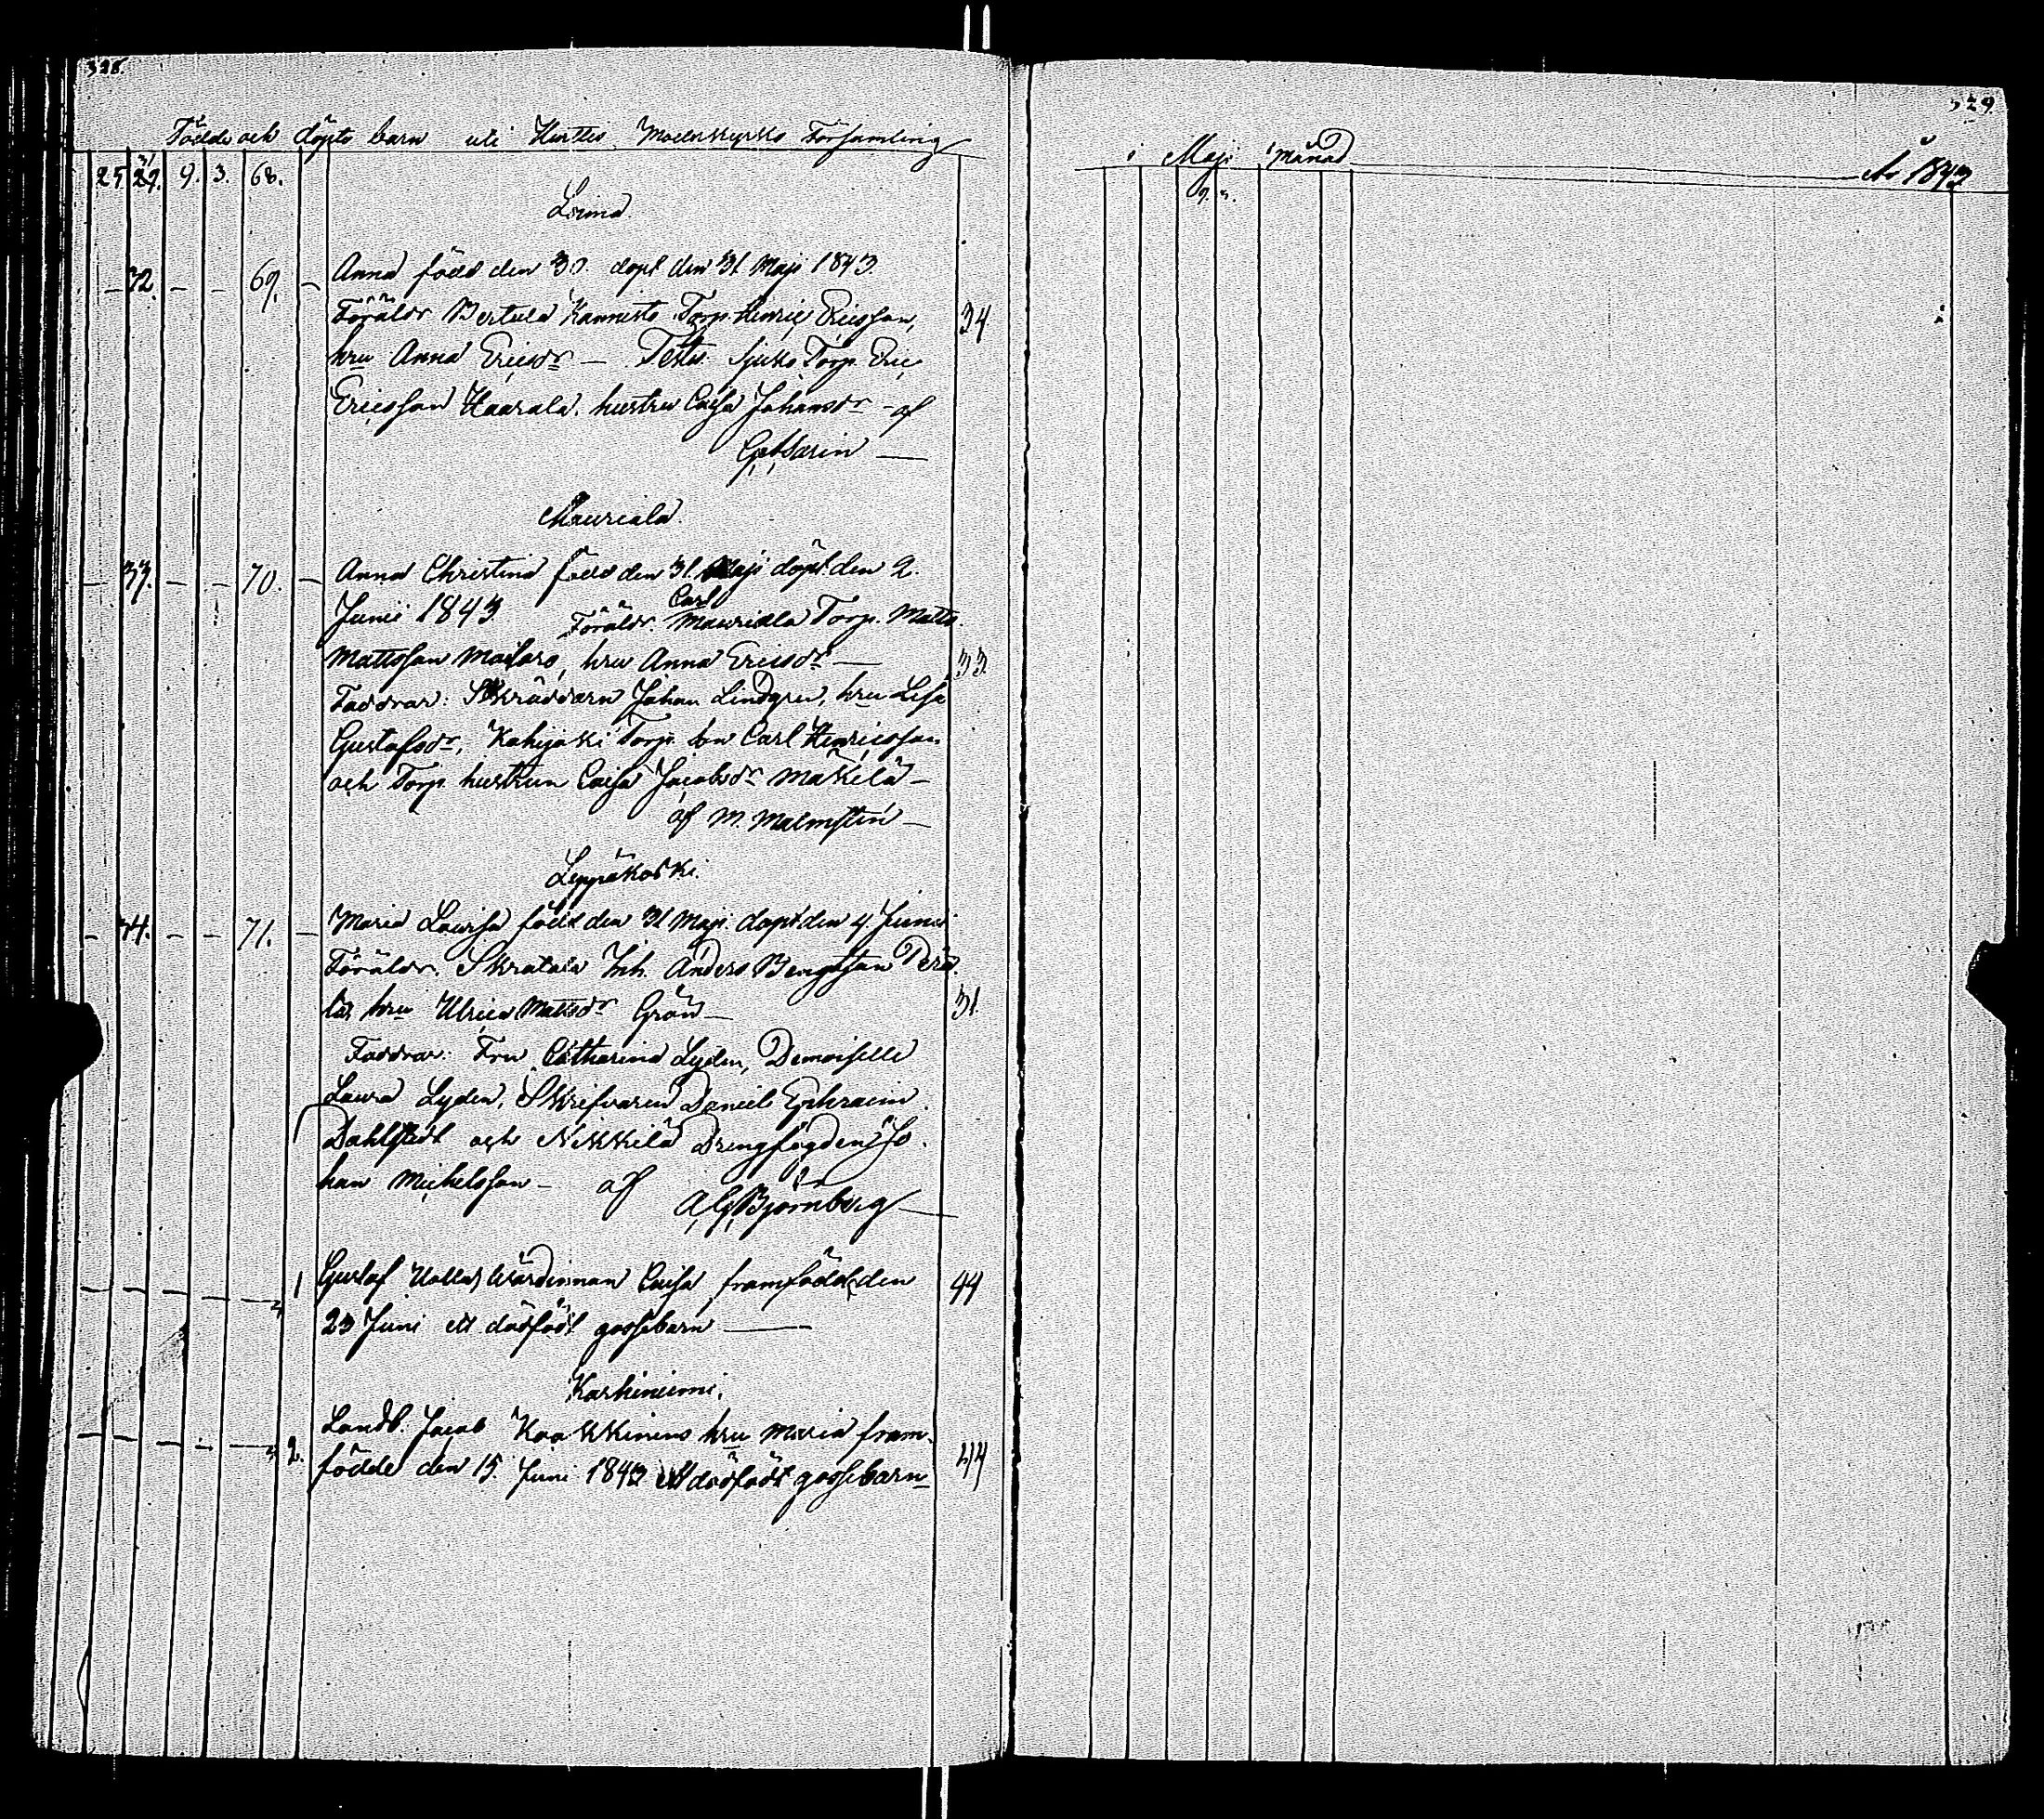 328.
Födde och döpte barn uti Hurttis Moderkyrko Församling
25. 31 29. 9. 3. 68.
Loima.
72. 69. Anna född den 30. döpt den 31 Maji 1843.
Föräldr Bertula Kannisto Torp. Henric Ericsson, 34
hru Anna Ericsdr — Test. Torp. Eric
Ericsson Haarala, hustru Caisa Johansdr — af
—
Mauriala.
33. 70. Anna Christina född den 31. Maji döpt den 2.
Carl
Junii 1843. Föräldr. Mauriala Torp. Matts
Mattsson hru Anna Ericsdr — 33
Faddrar: Skräddarn Johan Lindgren, hru Lisa
Gustafsdr, Torp. son Carl Henricsson
och Torp. hustrun Caisa Jacobsdr Mäkilä —
af M. Malmstén —
Leppäkoski.
34. 71. Maria Lovisa född den 31 Maji. döpt den 4. Junii
Föräldr. Inh. Anders Bengtsson
hru Ulrica Mattsdr Grön — 31.
Faddrar: Fru Catharina Lyden, Demoiselle
Laura Lyden, Skrifvaren Daniel Ephraim
Dahlstedt och Nikkilä Drengfogden Jo-
han Michelsson — af
A. G. Björnberg —
1 Gustaf Wärdinnan Caisa framfödde den 44
23 Juni ett dödfödt gossebarn —
Karhiniemi.
2. Landb. Jacob hru Maria fram-
födde den 15. Juni 1843 ett dödfödt gossebarn 44
329.
i Maji månad År 1843
9. 3.